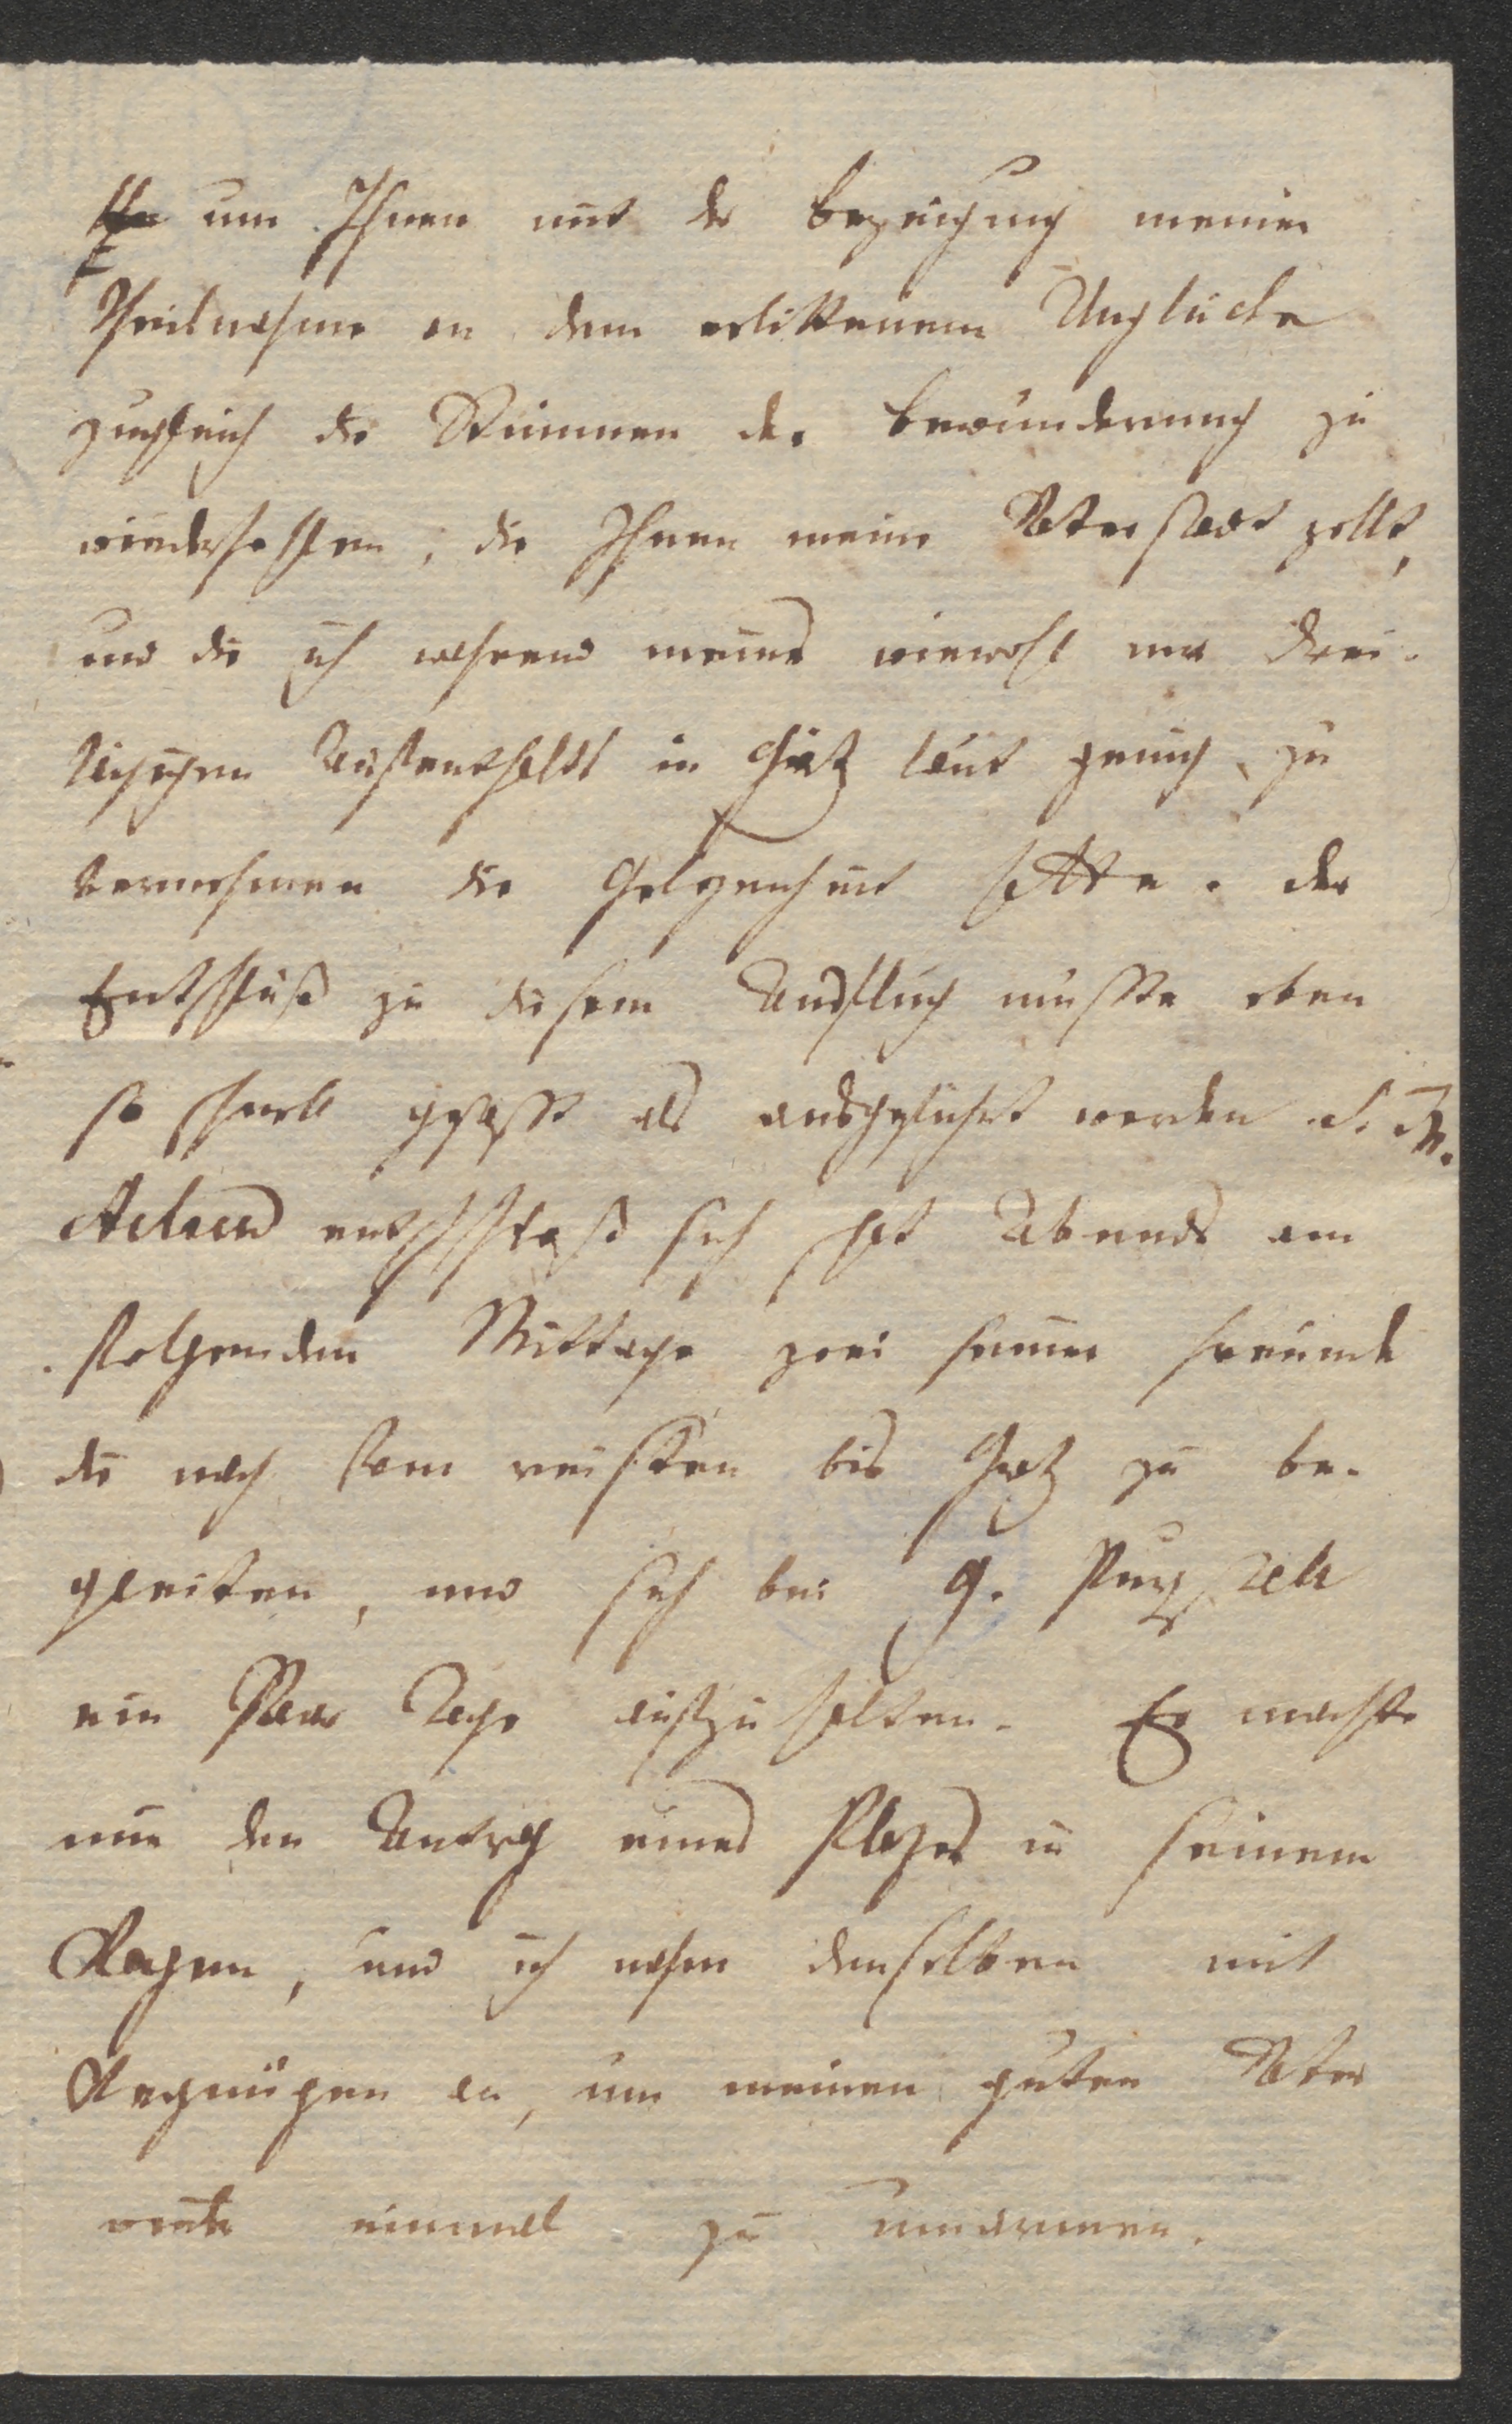 um Ihnen mit der Bezeigung meiner
Theilnahme an dem erlittenem Unglücke
zugleich die Stimmen der Bewunderung zu
wiederhohlen, die Ihnen meine Vaterstadt zollt,
und die ich während meines wiewohl nur drei-
tägigen Aufenthalts in Gratz laut genug zu
vernehmen die Gelegenheit hatte. Der
Entschluß zu diesem Ausflug mußte eben
so schnell gefaßt als ausgeführt werden.
entschloß sich spät Abends am
folgenden Mittage zwei seiner Freunde
die nach Rom reisten bis Gratz zu be-
gleiten, und sich bei G. Purgstall
ein Paar Tage aufzuhalten. Er machte
mir den Antrag eines Platzes in seinem
Wagen, und ich nahm denselben mit
Vergnügen an, um meinen guten Vater
wieder einmal zu umarmen.